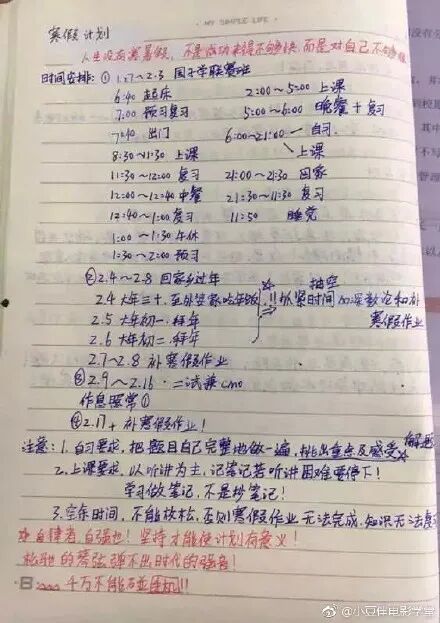 • MY SIMPLE LIFE •
寒假计划
人生没有寒暑假，不是成功来得不够快，而是对自己不够狠
时间安排：① 1.27~2.3 国子学联赛班
6:40 起床 2:00~5:00 上课
7:00 预习复习 5:00~6:00 晚餐+复习
7:40 出门 6:00~21:00 自习
上课
8:30~11:30 上课
11:30~12:00 复习 21:00~21:30 回家
12:00~12:40 中餐 21:30~11:30 复习
12:40~1:00 复习 11:50 睡觉
1:00~1:30 午休
1:30~2:00 预习
② 2.4~2.8 回家乡过年 抽空
2.4 大年三十，至外公家吃年饭 !! 抓紧时间加深数论和补
2.5 大年初一 拜年 寒假作业
2.6 大年初二 拜年
2.7~2.8 补寒假作业
③ 2.9~2.16 二试兼CMO
作息照常①
④ 2.17+ 补寒假作业！
注意：1. 自习要求，把题目自己完整地做一遍，挑出重点及感受
2. 上课要求，以听讲为主，记笔记若听讲困难要停下！
学习做笔记，不是抄笔记！
3. 空余时间，不能放松，否则寒假作业无法完成，知识无法复习
自律者自强也！坚持才能使计划有意义！
松弛的琴弦弹不出时代的强音！
千万不能碰手机!!
@小豆伴电影学堂